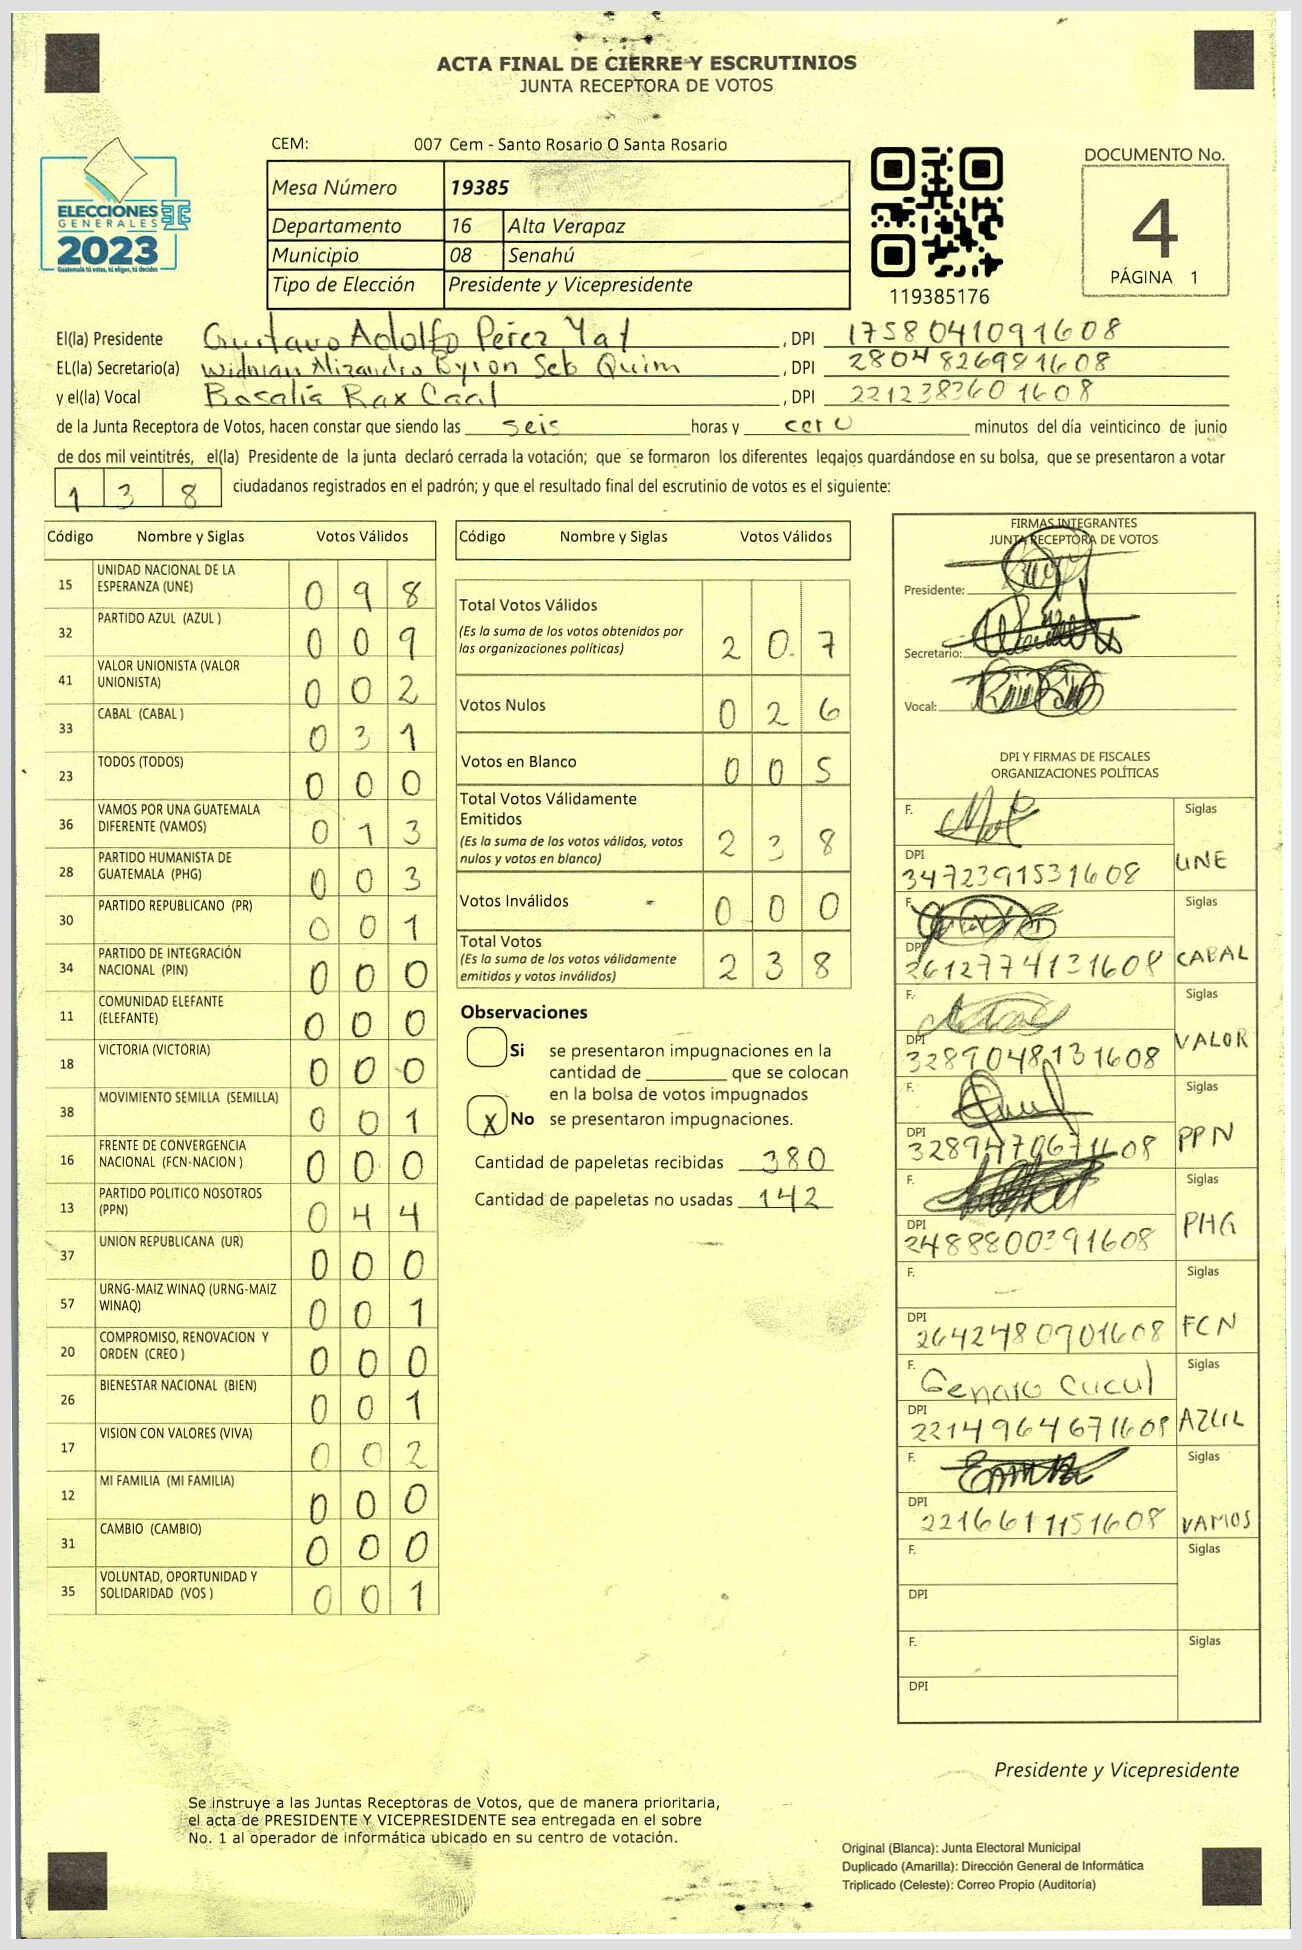 ACTA FINAL DE CIERRE Y ESCRUTINIOS
JUNTA RECEPTORA DE VOTOS
CEM: 007 Cem - Santo Rosario O Santa Rosario
Mesa Número 19385
Departamento 16 Alta Verapaz
Municipio 08 Senahú
Tipo de Elección Presidente y Vicepresidente
ELECCIONES
GENERALES
2023
Guatemala tú votas, tú eliges, tú decides
119385176
DOCUMENTO No.
4
PÁGINA 1
El(la) Presidente Gustavo Adolfo Pérez Yat , DPI 1758041091608
EL(la) Secretario(a) Widman Alizandro Byron Seb Quim , DPI 2804826981608
y el(la) Vocal Rosalía Rax Caal , DPI 2212383601608
de la Junta Receptora de Votos, hacen constar que siendo las seis horas y cero minutos del día veinticinco de junio
de dos mil veintitrés, el(la) Presidente de la junta declaró cerrada la votación; que se formaron los diferentes legajos guardándose en su bolsa, que se presentaron a votar
1 3 8 ciudadanos registrados en el padrón; y que el resultado final del escrutinio de votos es el siguiente:
Código Nombre y Siglas Votos Válidos
15 UNIDAD NACIONAL DE LA ESPERANZA (UNE) 0 9 8
32 PARTIDO AZUL (AZUL ) 0 0 9
41 VALOR UNIONISTA (VALOR UNIONISTA) 0 0 2
33 CABAL (CABAL ) 0 3 1
23 TODOS (TODOS) 0 0 0
36 VAMOS POR UNA GUATEMALA DIFERENTE (VAMOS) 0 1 3
28 PARTIDO HUMANISTA DE GUATEMALA (PHG) 0 0 3
30 PARTIDO REPUBLICANO (PR) 0 0 1
34 PARTIDO DE INTEGRACIÓN NACIONAL (PIN) 0 0 0
11 COMUNIDAD ELEFANTE (ELEFANTE) 0 0 0
18 VICTORIA (VICTORIA) 0 0 0
38 MOVIMIENTO SEMILLA (SEMILLA) 0 0 1
16 FRENTE DE CONVERGENCIA NACIONAL (FCN-NACION ) 0 0 0
13 PARTIDO POLITICO NOSOTROS (PPN) 0 4 4
37 UNION REPUBLICANA (UR) 0 0 0
57 URNG-MAIZ WINAQ (URNG-MAIZ WINAQ) 0 0 1
20 COMPROMISO, RENOVACION Y ORDEN (CREO ) 0 0 0
26 BIENESTAR NACIONAL (BIEN) 0 0 1
17 VISION CON VALORES (VIVA) 0 0 2
12 MI FAMILIA (MI FAMILIA) 0 0 0
31 CAMBIO (CAMBIO) 0 0 0
35 VOLUNTAD, OPORTUNIDAD Y SOLIDARIDAD (VOS ) 0 0 1
Código Nombre y Siglas Votos Válidos
Total Votos Válidos 2 0 7
(Es la suma de los votos obtenidos por
las organizaciones políticas)
Votos Nulos 0 2 6
Votos en Blanco 0 0 5
Total Votos Válidamente
Emitidos 2 3 8
(Es la suma de los votos válidos, votos
nulos y votos en blanco)
Votos Inválidos 0 0 0
Total Votos 2 3 8
(Es la suma de los votos válidamente
emitidos y votos inválidos)
Observaciones
Si se presentaron impugnaciones en la
cantidad de ________ que se colocan
en la bolsa de votos impugnados
X No se presentaron impugnaciones.
Cantidad de papeletas recibidas 380
Cantidad de papeletas no usadas 142
FIRMAS INTEGRANTES
JUNTA RECEPTORA DE VOTOS
Presidente:
Secretario:
Vocal:
DPI Y FIRMAS DE FISCALES
ORGANIZACIONES POLÍTICAS
F. Siglas
DPI 3472391531608 UNE
F. Siglas
DPI 2612774131608 CABAL
F. Siglas
DPI 3289048131608 VALOR
F. Siglas
DPI 3289470671608 PPN
F. Siglas
DPI 2488800391608 PHG
F. Siglas
DPI 2642480901608 FCN
F. Genaro Cucul Siglas
DPI 2214964671608 AZUL
F. Siglas
DPI 2216611151608 VAMOS
F. Siglas
DPI
F. Siglas
DPI
Presidente y Vicepresidente
Se instruye a las Juntas Receptoras de Votos, que de manera prioritaria,
el acta de PRESIDENTE Y VICEPRESIDENTE sea entregada en el sobre
No. 1 al operador de informática ubicado en su centro de votación.
Original (Blanca): Junta Electoral Municipal
Duplicado (Amarilla): Dirección General de Informática
Triplicado (Celeste): Correo Propio (Auditoría)